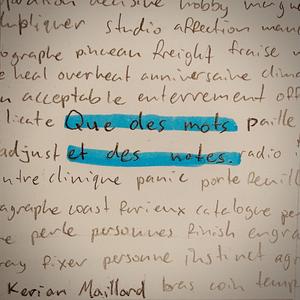 décisive hobby
studio affection
ographe pinceau freight fraise
heal overheat anniversaire
acceptable enterrement
licate Que des mots paille
adjust et des notes. radio
clinique panic portefeuille
agraphe coast furieux catalogue
perle personnes finish
fixer personne instinct
Kerian Maillard bras coin